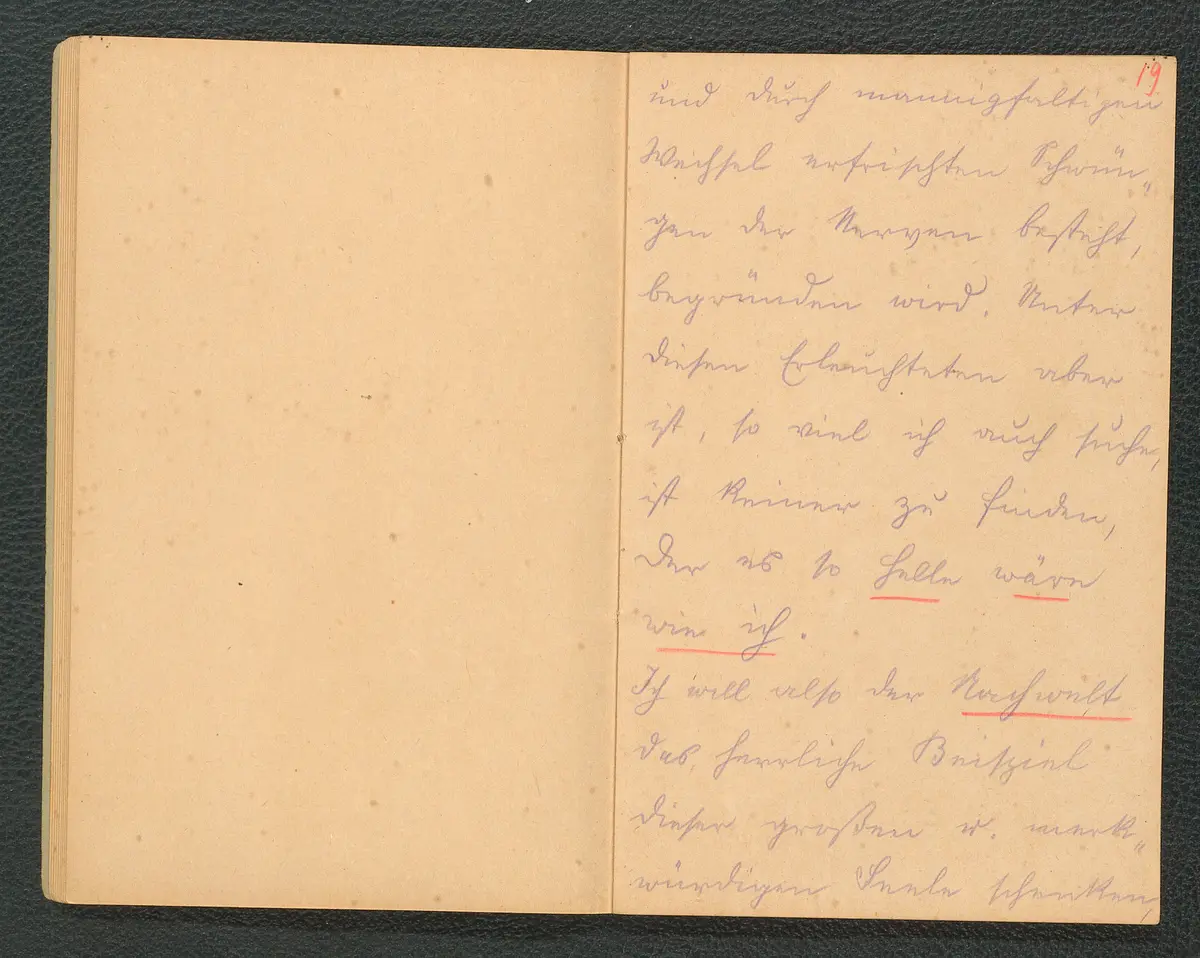 19
und durch mannigfaltigen
Wechsel erfrischten Schwün„
gen der Nerven besteht,
begründen wird. Unter
diesen Erleuchteten aber
ist, so viel ich auch suche,
ist keiner zu finden,
der es so helle wäre
wie ich.
Ich will also der Nachwelt
das herrliche Beispiel
dieser großen u. merk„
würdigen Seele schenken,